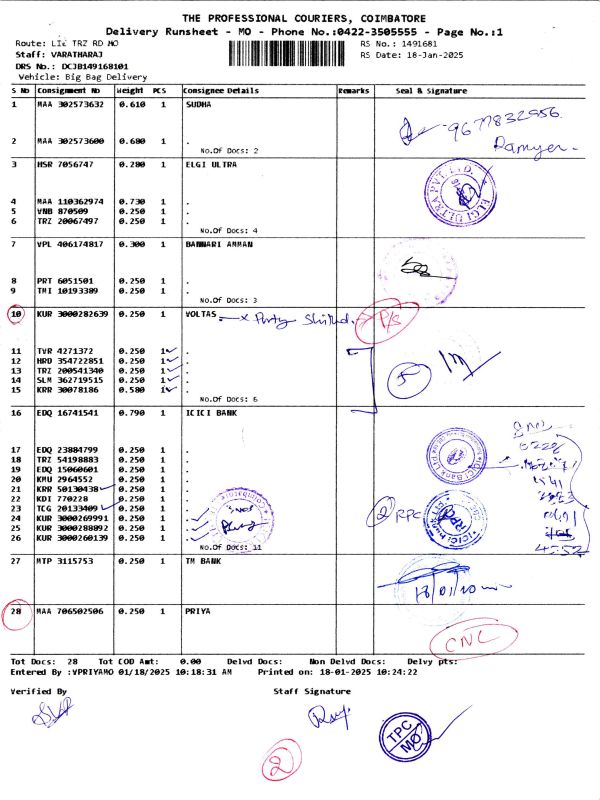 THE PROFESSIONAL COURIERS, COIMBATORE
Delivery Runsheet - MO - Phone No.:0422-3505555 - Page No.:1
Route: LIC TRZ RD MO
RS No.: 1491681
Staff: VARATHARAJ
RS Date: 18-Jan-2025
DRS No.: DCJB149168101
Vehicle: Big Bag Delivery
S No Consignment No Weight PCS Consignee Details Remarks Seal & Signature
1 MAA 302573632 0.610 1 SUDHA
9677832956
2 MAA 302573600 0.680 1 .
No.Of Docs: 2
3 HSR 7056747 0.280 1 ELGI ULTRA
4 MAA 110362974 0.730 1 .
5 VNB 870509 0.250 1 .
6 TRZ 20067497 0.250 1 .
No.Of Docs: 4
7 VPL 406174817 0.300 1 BANNARI AMMAN
8 PRT 6051501 0.250 1 .
9 TMI 10193389 0.250 1 .
No.Of Docs: 3
10 KUR 3000282639 0.250 1 VOLTAS x Party Shifted. P/S
11 TVR 4271372 0.250 1 .
12 HRD 354722851 0.250 1 .
13 TRZ 200541340 0.250 1 .
14 SLM 362719515 0.250 1 .
15 KRR 30078186 0.580 1 .
5
No.Of Docs: 6
16 EDQ 16741541 0.790 1 ICICI BANK
17 EDQ 23884799 0.250 1 .
18 TRZ 54198883 0.250 1 .
19 EDQ 15060601 0.250 1 .
20 KMU 2964552 0.250 1 .
21 KRR 50130438 0.250 1 .
22 KDI 770228 0.250 1 .
23 TCG 20133409 0.250 1 .
24 KUR 3000269991 0.250 1 .
25 KUR 3000288892 0.250 1 .
26 KUR 3000260139 0.250 1 .
2 RPC
4552
No.Of Docs: 11
27 MTP 3115753 0.250 1 TM BANK
28 MAA 706502506 0.250 1 PRIYA
CNL
Tot Docs: 28 Tot COD Amt: 0.00 Delvd Docs: Non Delvd Docs: Delvy pts:
Entered By :VPRIYAMO 01/18/2025 10:18:31 AM Printed on: 18-01-2025 10:24:22
Verified By Staff Signature
TPC
MO
2